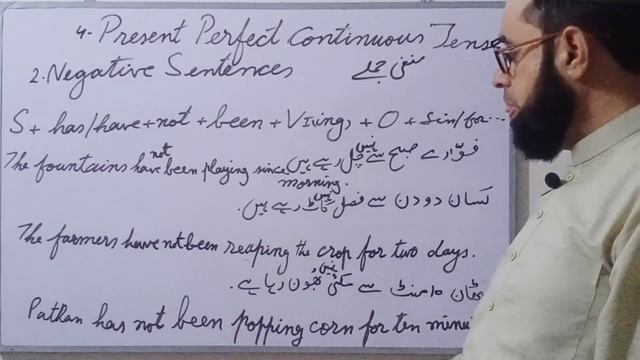 4- Present Perfect Continuous Tense
2. Negative Sentences منفی جملے
S + has/have + not + been + V1(ing) + O + Sin/for...
فوّارے صبح سے نہیں چل رہے ہیں
The fountains have not been playing since morning.
کسان دو دن سے فصل نہیں کاٹ رہے ہیں۔
The farmers have not been reaping the crop for two days.
پٹھان ۱۰ منٹ سے مکئی نہیں بھون رہا ہے۔
Pathan has not been popping corn for ten